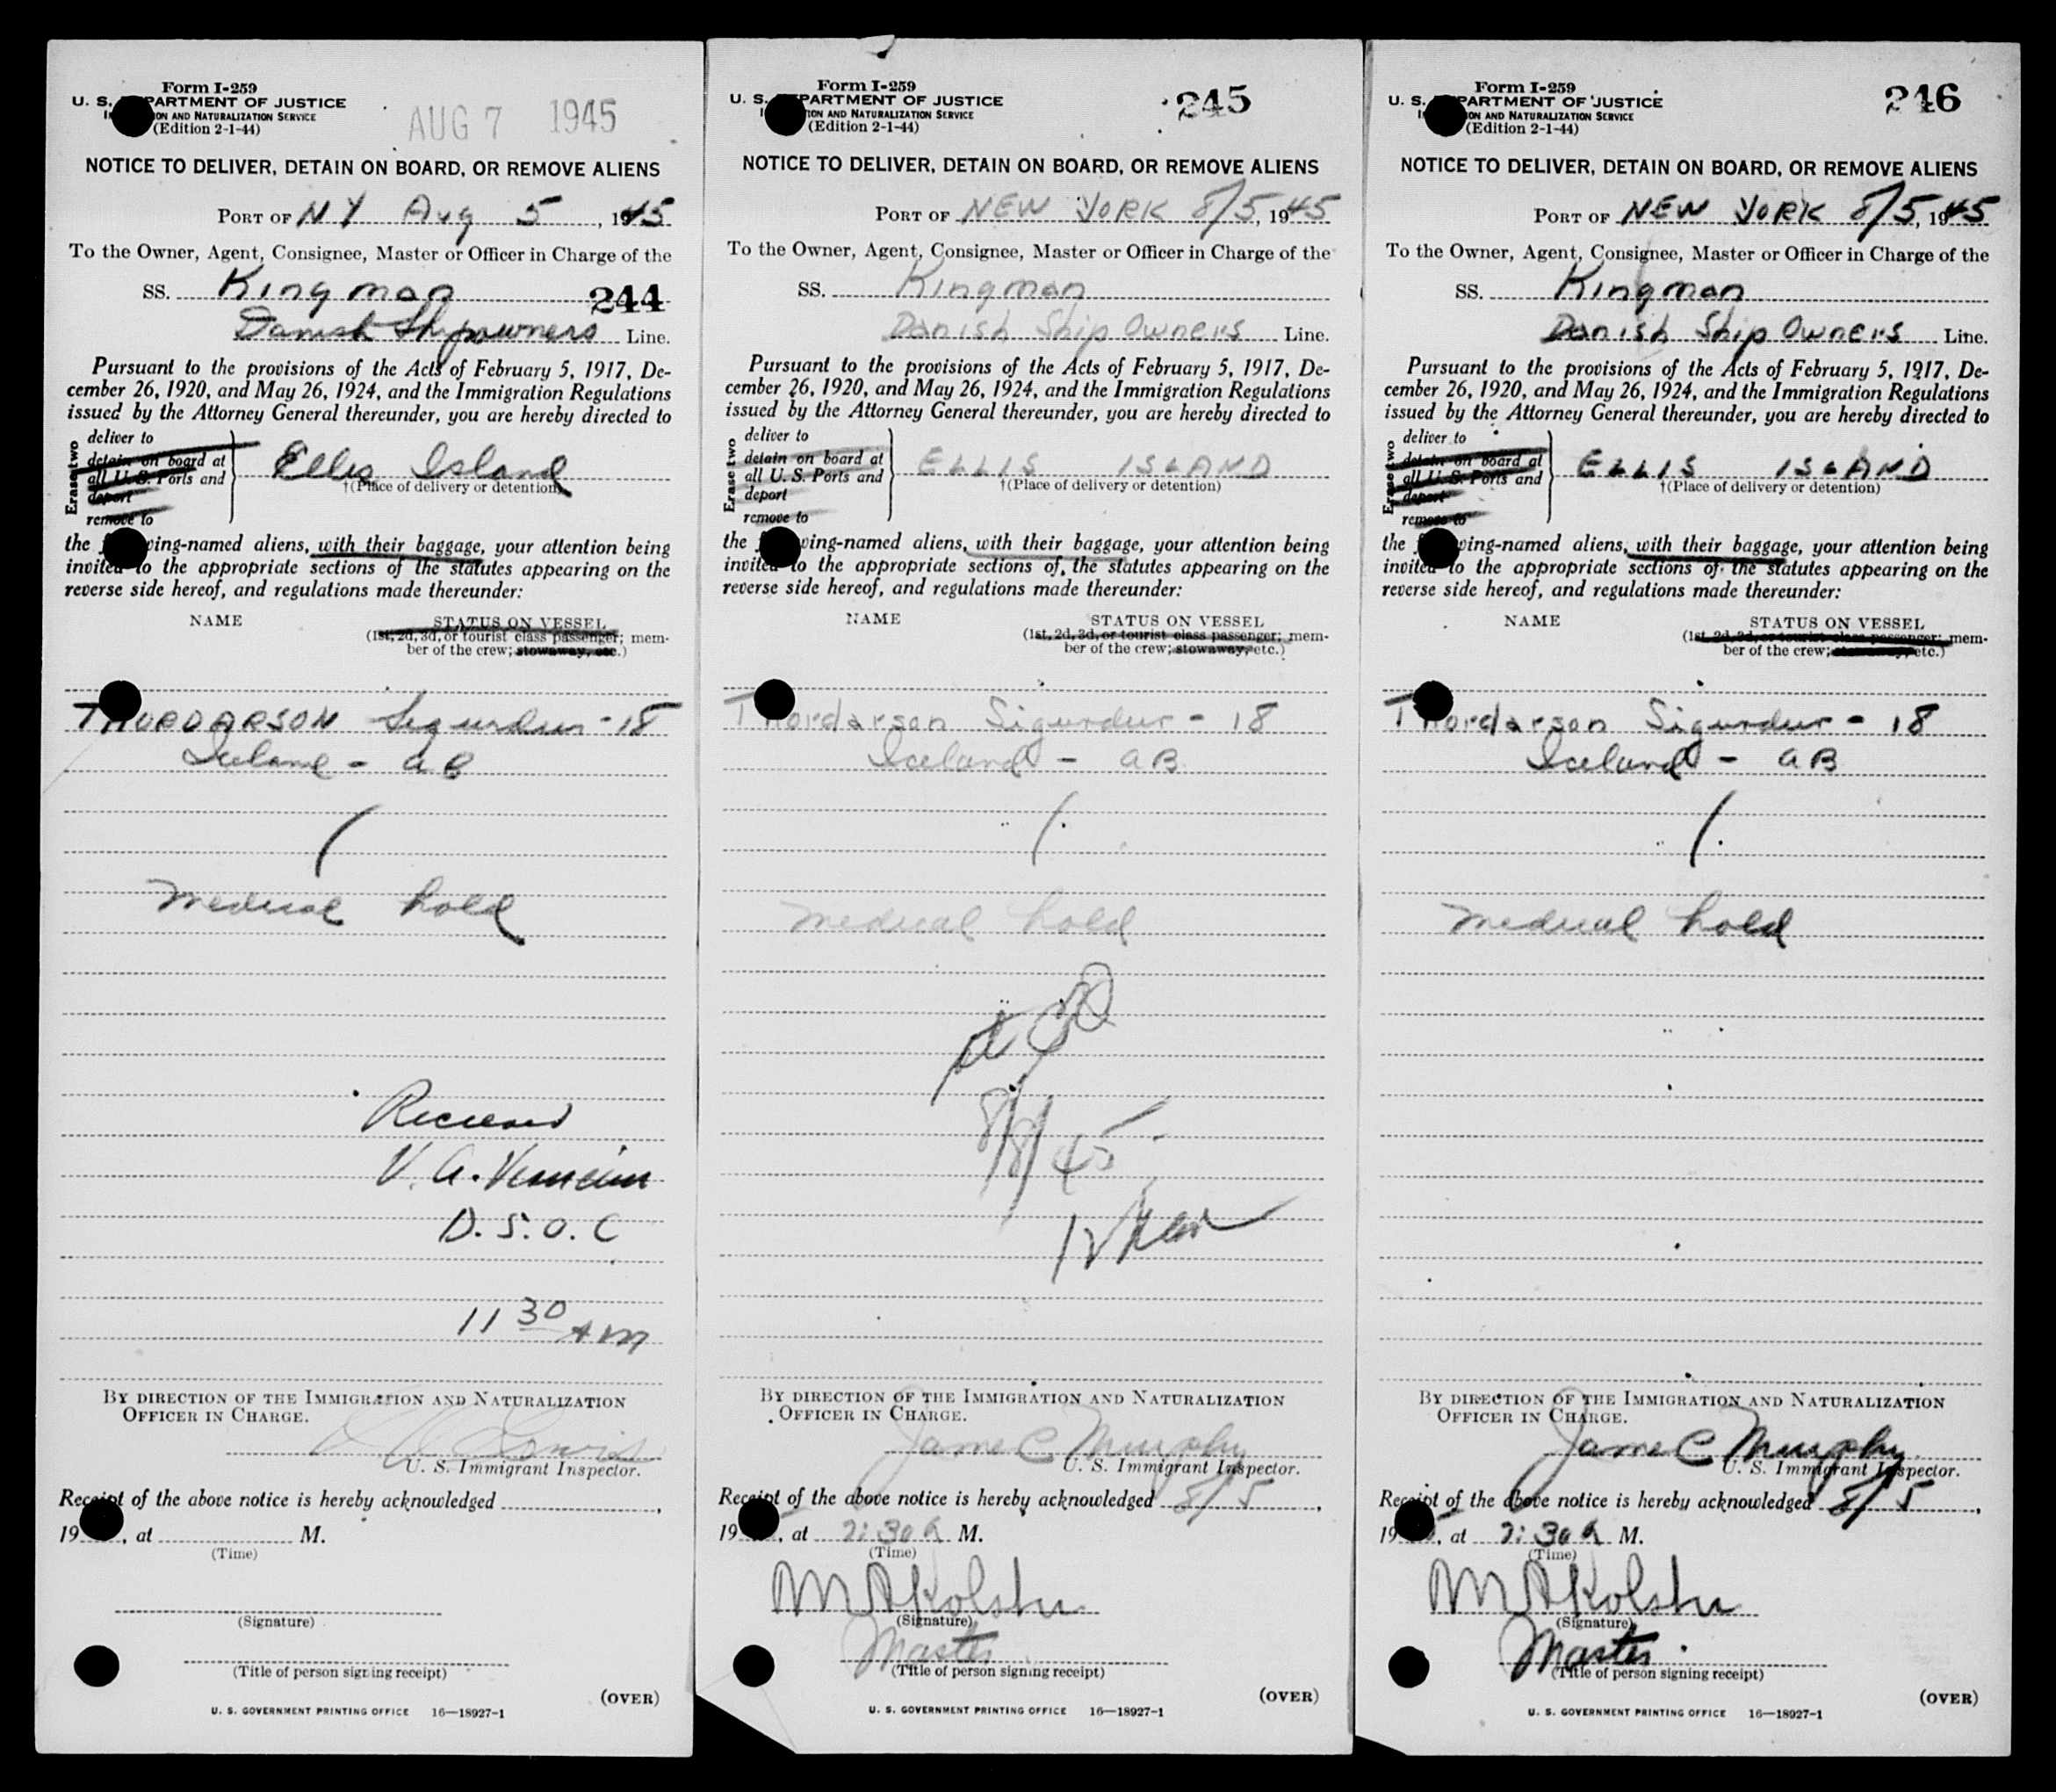 Form I-259
U. S. DEPARTMENT OF JUSTICE
ON AND NATURALIZATION SERVICE
(Edition 2-1-44)
AUG 7 1945
NOTICE TO DELIVER, DETAIN ON BOARD, OR REMOVE ALIENS
PORT OF NY Aug 5, 1945
To the Owner, Agent, Consignee, Master or Officer in Charge of the
SS. Kingman 244
Danish Shipowners Line.
Pursuant to the provisions of the Acts of February 5, 1917, De-
cember 26, 1920, and May 26, 1924, and the Immigration Regulations
issued by the Attorney General thereunder, you are hereby directed to
Erase two
deliver to
detain on board at
all U. S. Ports and
deport
remove to
Ellis Island
†(Place of delivery or detention)
the following-named aliens, with their baggage, your attention being
invited to the appropriate sections of the statutes appearing on the
reverse side hereof, and regulations made thereunder:
NAME STATUS ON VESSEL
(1st, 2d, 3d, or tourist class passenger; mem-
ber of the crew; stowaway, etc.)
THORDARSON Sigurdur - 18
Iceland - AB
Medical hold
Received
V. A.
D. S. O. C
11 30 AM
BY DIRECTION OF THE IMMIGRATION AND NATURALIZATION
OFFICER IN CHARGE.
U. S. Immigrant Inspector.
Receipt of the above notice is hereby acknowledged ,
19 , at M.
(Time)
(Signature)
(Title of person signing receipt)
(OVER)
U. S. GOVERNMENT PRINTING OFFICE 16—18927-1
Form I-259
U. S. DEPARTMENT OF JUSTICE
ION AND NATURALIZATION SERVICE
(Edition 2-1-44)
245
NOTICE TO DELIVER, DETAIN ON BOARD, OR REMOVE ALIENS
PORT OF NEW YORK 8/5, 1945
To the Owner, Agent, Consignee, Master or Officer in Charge of the
SS. Kingman
Danish Ship Owners Line.
Pursuant to the provisions of the Acts of February 5, 1917, De-
cember 26, 1920, and May 26, 1924, and the Immigration Regulations
issued by the Attorney General thereunder, you are hereby directed to
Erase two
deliver to
detain on board at
all U. S. Ports and
deport
remove to
ELLIS ISLAND
†(Place of delivery or detention)
the following-named aliens, with their baggage, your attention being
invited to the appropriate sections of the statutes appearing on the
reverse side hereof, and regulations made thereunder:
NAME STATUS ON VESSEL
(1st, 2d, 3d, or tourist class passenger; mem-
ber of the crew; stowaway, etc.)
Thordarson Sigurdur - 18
Iceland - AB
Medical hold
8/8/45
BY DIRECTION OF THE IMMIGRATION AND NATURALIZATION
OFFICER IN CHARGE.
James C Murphy
U. S. Immigrant Inspector.
Receipt of the above notice is hereby acknowledged 8/5,
19 , at 7:30 A M.
(Time)
(Signature)
Master
(Title of person signing receipt)
(OVER)
U. S. GOVERNMENT PRINTING OFFICE 16—18927-1
Form I-259
U. S. DEPARTMENT OF JUSTICE
ON AND NATURALIZATION SERVICE
(Edition 2-1-44)
246
NOTICE TO DELIVER, DETAIN ON BOARD, OR REMOVE ALIENS
PORT OF NEW YORK 8/5, 1945
To the Owner, Agent, Consignee, Master or Officer in Charge of the
SS. Kingman
Danish Ship Owners Line.
Pursuant to the provisions of the Acts of February 5, 1917, De-
cember 26, 1920, and May 26, 1924, and the Immigration Regulations
issued by the Attorney General thereunder, you are hereby directed to
Erase two
deliver to
detain on board at
all U. S. Ports and
deport
remove to
ELLIS ISLAND
†(Place of delivery or detention)
the following-named aliens, with their baggage, your attention being
invited to the appropriate sections of the statutes appearing on the
reverse side hereof, and regulations made thereunder:
NAME STATUS ON VESSEL
(1st, 2d, 3d, or tourist class passenger; mem-
ber of the crew; stowaway, etc.)
Thordarson Sigurdur - 18
Iceland - AB
Medical hold
BY DIRECTION OF THE IMMIGRATION AND NATURALIZATION
OFFICER IN CHARGE.
James C Murphy
U. S. Immigrant Inspector.
Receipt of the above notice is hereby acknowledged 8/5,
19 , at 7:30 A M.
(Time)
(Signature)
Master
(Title of person signing receipt)
(OVER)
U. S. GOVERNMENT PRINTING OFFICE 16—18927-1